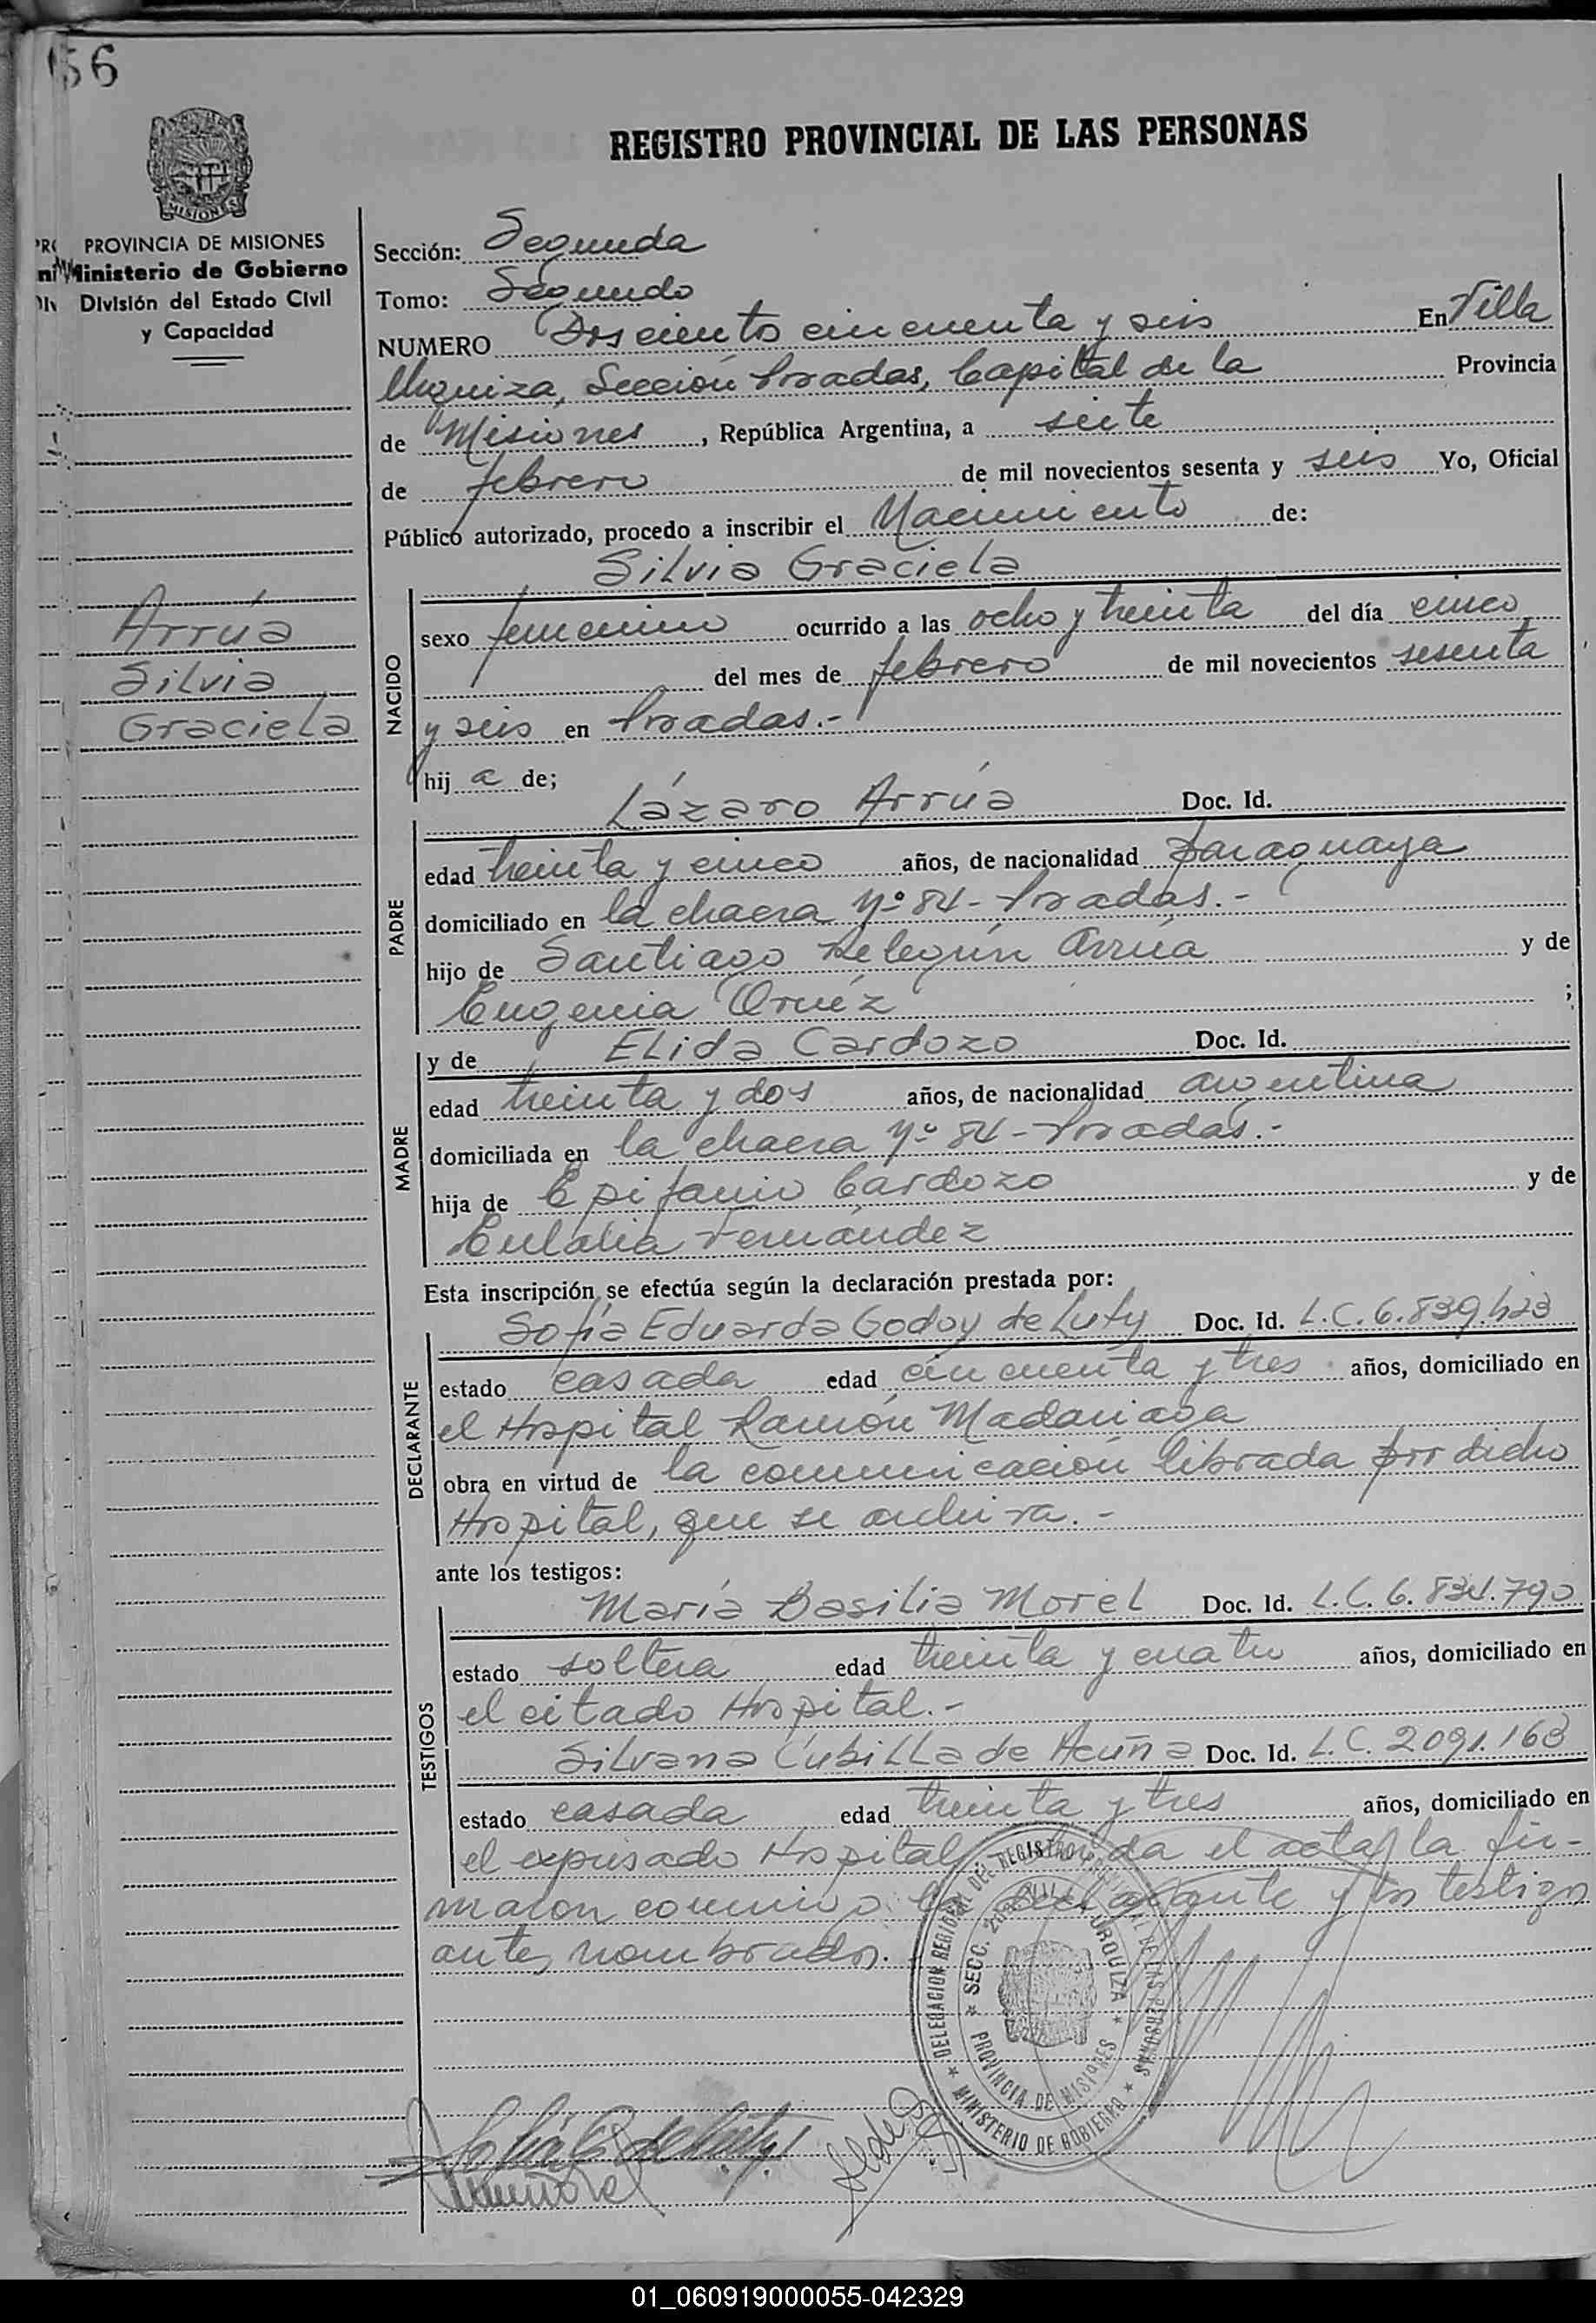 56
MISIONES
PROVINCIA DE MISIONES
Ministerio de Gobierno
División del Estado Civil
y Capacidad
Arrúa
Silvia
Graciela
REGISTRO PROVINCIAL DE LAS PERSONAS
Sección: Segunda
Tomo: Segundo
NUMERO Doscientos cincuenta y seis En Villa
Urquiza, Sección Posadas, Capital de la Provincia
de Misiones, República Argentina, a siete
de febrero de mil novecientos sesenta y seis Yo, Oficial
Público autorizado, procedo a inscribir el Nacimiento de:
Silvia Graciela
NACIDO
sexo femenino ocurrido a las ocho y treinta del día cinco
del mes de febrero de mil novecientos sesenta
y seis en Posadas.-
hij a de;
Lázaro Arrúa Doc. Id.
PADRE
edad treinta y cinco años, de nacionalidad paraguaya
domiciliado en la chacra Nº 84 - Posadas.-
hijo de Santiago Arrúa y de
Eugenia ;
y de Elida Cardozo Doc. Id.
MADRE
edad treinta y dos años, de nacionalidad argentina
domiciliada en la chacra Nº 84 - Posadas.-
hija de Epifanio Cardozo y de
Eulalia Fernández
Esta inscripción se efectúa según la declaración prestada por:
Sofía Eduarda Godoy de Luty Doc. Id. L.C. 6.839.423
DECLARANTE
estado casada edad cincuenta y tres años, domiciliado en
el Hospital Ramón Madariaga
obra en virtud de la comunicación librada por dicho
Hospital, que se archiva.-
ante los testigos:
María Basilia Morel Doc. Id. L.C. 6.834.790
TESTIGOS
estado soltera edad treinta y cuatro años, domiciliado en
el citado Hospital.-
Silvana Cubilla de Acuña Doc. Id. L.C. 2091.163
estado casada edad treinta y tres años, domiciliado en
el expresado Hospital, el acta, la fir-
maron conmigo la declarante y los testigos
antes nombrados.
DELEGACION REGIONAL DEL REGISTRO PROVINCIAL DE LAS PERSONAS
MINISTERIO DE GOBIERNO
SECC. 2da. VILLA URQUIZA
PROVINCIA DE MISIONES
01_060919000055-042329